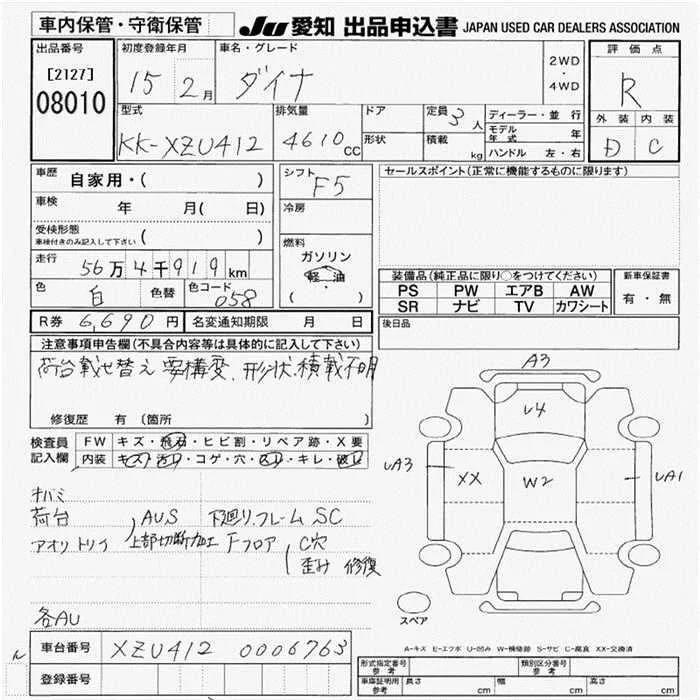 車内保管・守衛保管 JU 愛知 出品申込書 JAPAN USED CAR DEALERS ASSOCIATION
出品番号 初度登録年月 車名・グレード 評価点
[2127] 15 2月 ダイナ 2WD・4WD R
08010
型式 排気量 ドア 定員 3人 ディーラー・並行 外装 内装
KK-XZU412 4610cc 形状 積載 kg モデル年式 年 D C
ハンドル 左・右
車歴 自家用・( ) シフト F5 セールスポイント(正常に機能するものに限ります)
車検 年 月( 日) 冷房
受検形態 ( )
車検付きのみ記入して下さい
燃料
走行 56万4千919km ガソリン
軽・油
( ・ )
装備品(純正品に限り○をつけてください) 新車保証書
色 白 色替 色コード 058 PS PW エアB AW 有・無
SR ナビ TV カワシート
R券 6,690円 名変通知期限 月 日 後日品
注意事項申告欄(不具合内容等は具体的に記入して下さい)
荷台載せ替え 要構変、形状、積載不明
修復歴 有 (箇所 )
検査員 FW キズ・飛石・ヒビ割・リペア跡・X要
記入欄 内装 キズ・汚れ・コゲ・穴・スレ・キレ・破れ
A3
U4
UA3 XX W2 UA1
キバミ
荷台 AUS 下廻り、フレーム SC
アオリ トリイ 上部切断加工 Fフロア C穴
歪み 修復
各AU
スペア
A-キズ E-エクボ U-凹み W-補修跡 S-サビ C-腐食 XX-交換済
車台番号 XZU412 0006763
登録番号
形式指定番号 参考 類別区分番号 参考
車庫証明用 参考 長さ cm 幅 cm 高さ cm